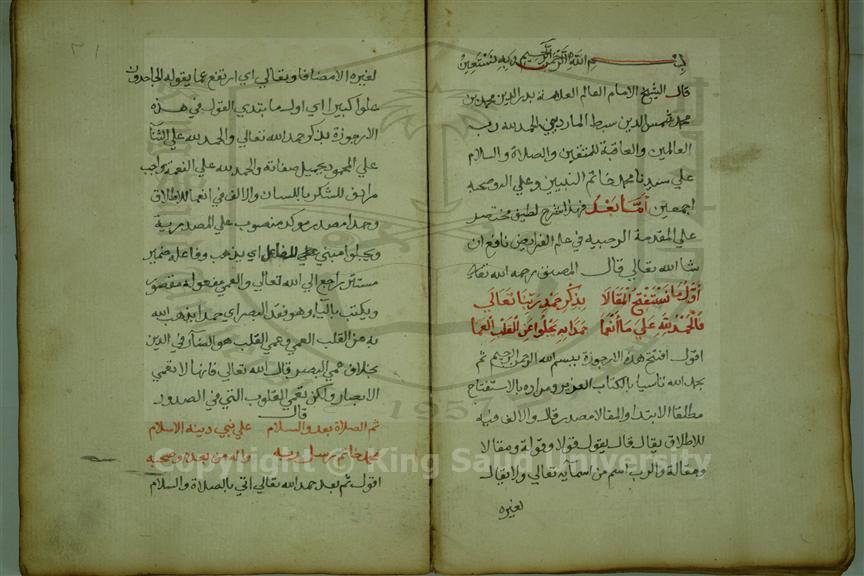 بسم الله الرحمن الرحيم وبه نستعين
قال الشيخ الامام العالم العلامة بدر الدين محمد بن
محمد شمس الدين سبط المارديني الحمد لله رب
العالمين والعاقبة للمتقين والصلاة والسلام
علي سيدنا محمد خاتم النبيين وعلي اله وصحبه
اجمعين اما بعد فهذا شرح لطيف مختصر
علي المقدمة الرحبيه في علم الفرايض نافع ان
شا الله تعالي قال المصنف رحمه الله تعالي
اول ما نستفتح المقالا بذكر حمد ربنا تعالي
فالحمد لله علي ما انعما حمدا به يجلوا عن القلب العما
اقول افتتح هذه الارجوزة ببسم الله الرحمن الرحيم ثم
بحمد الله تأسيا بالكتاب العزيز ومراده بالاستفتاح
مطلقا الابتدا والمقالا مصدر قال والالف فيه
للاطلاق يقال قال يقول قولا وقولة ومقالا
ومقالة والرب اسم من اسمايه تعالي ولا يقال
لغيره
لغيره الا مضافا وتعالي اي ارتفع عما يقوله الجاحدون
علوا كبيرا اي اول ما نبتدي القول في هذه
الارجوزة بذكر حمد الله تعالي والحمد لله علي الثنا
علي المحمود بجميل صفاته والحمد لله علي النعمة واجب
مرادف للشكر باللسان والالف في انعما للاطلاق
وحمدا مصدر موكد منصوب علي المصدرية
ويجلوا مبني علي للفاعل اي يذهب وفاعله ضمير
مستتر راجع الي الله تعالي والعمي مفعوله مقصور
ويكتب باليا وهو فقد البصر اي حمدا يذهب الله
به عن القلب العمي وعمي القلب هو الضار في الدين
بخلاف عمي البصر قال الله تعالي فانها لا تعمي
الابصار ولكن تعمي القلوب التي في الصدور
قال
ثم الصلاة بعد والسلام علي نبي دينه الاسلام
محمد خاتم رسل ربه واله من بعده وصحبه
اقول ثم بعد حمد الله تعالي اتي بالصلاة والسلام
1957
Copyright © King Saud University